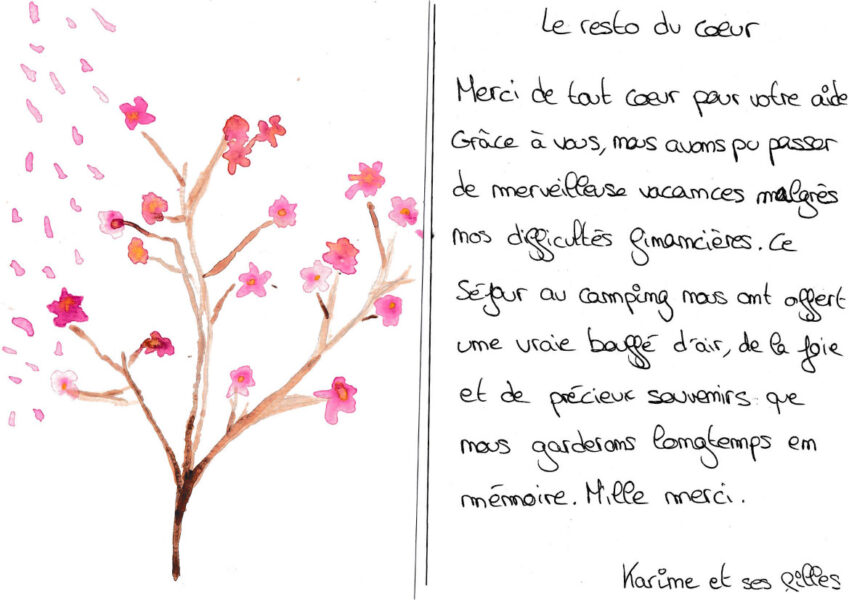 Le resto du coeur
Merci de tout coeur pour votre aide
Grâce à vous, nous avons pu passer
de merveilleuse vacances malgrès
nos difficultés financières. Ce
Séjour au camping nous ont offert
une vraie bouffé d'air, de la joie
et de précieux souvenirs que
nous garderons longtemps en
mémoire. Mille merci.
Karine et ses filles